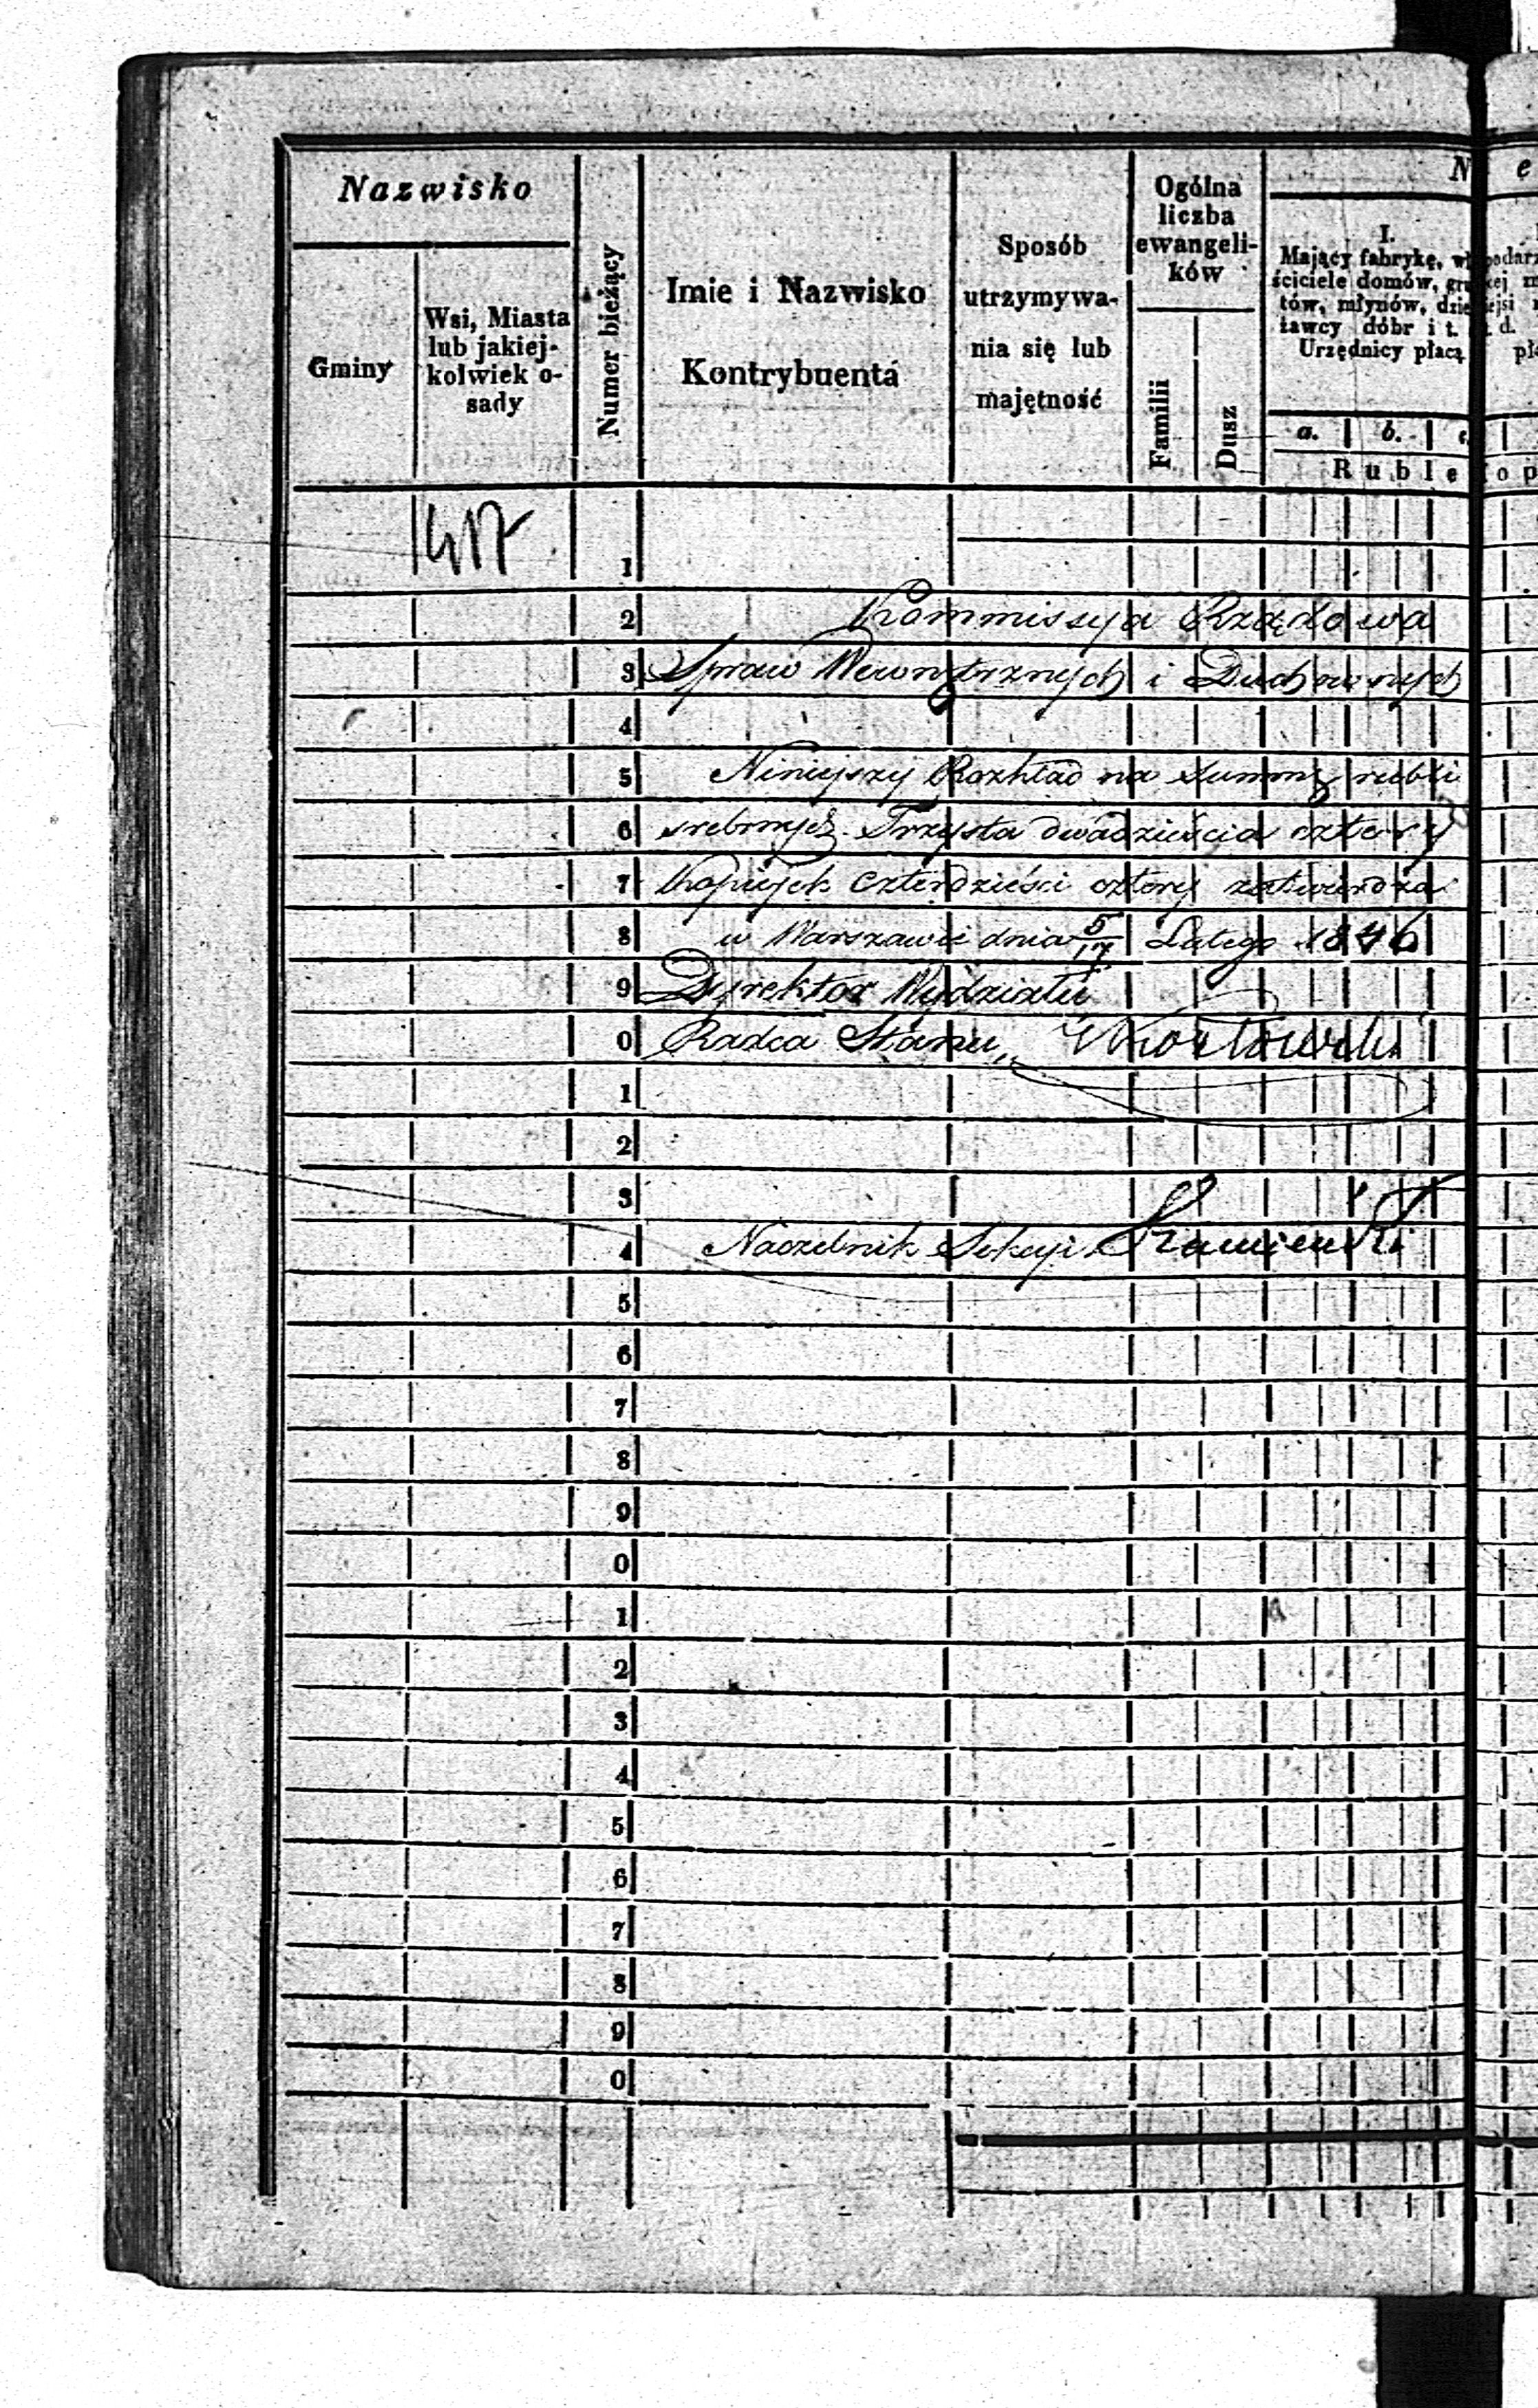 Nazwisko
Gminy
Wsi, Miasta
lub jakiej-
kolwiek o-
sady
Numer bieżący
Imie i Nazwisko
Kontrybuenta
Sposób
utrzymywa-
nia się lub
majętność
Ogólna
liczba
ewangeli-
ków
Familii
Dusz
N e
I.
Mający fabrykę, wł
ściciele domów, gru
tów, młynów, dzie
żawcy dóbr i t. d.
Urzędnicy płacą
a. b. c.
Ruble
417
1
2 Kommissyja Rządowa
3 Spraw Wewnętrznych i Duchownych
4
5 Niniejszy Rozkład na summę rubli
6 srebrnych Trzysta dwadzieścia cztery
7 kopiejek czterdzieści cztery zatwierdza
8 w Warszawie dnia 5/17 Lutego 1846
9 Dyrektor Wydziału
0 Radca Stanu,
1
2
3
4 Naczelnik Sekcyi Kamieński
5
6
7
8
9
0
1
2
3
4
5
6
7
8
9
0